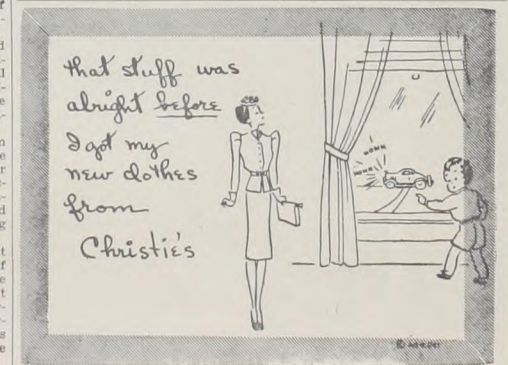 that stuff was
alright before
I got my
new clothes
from
Christie's
HONK
HONK